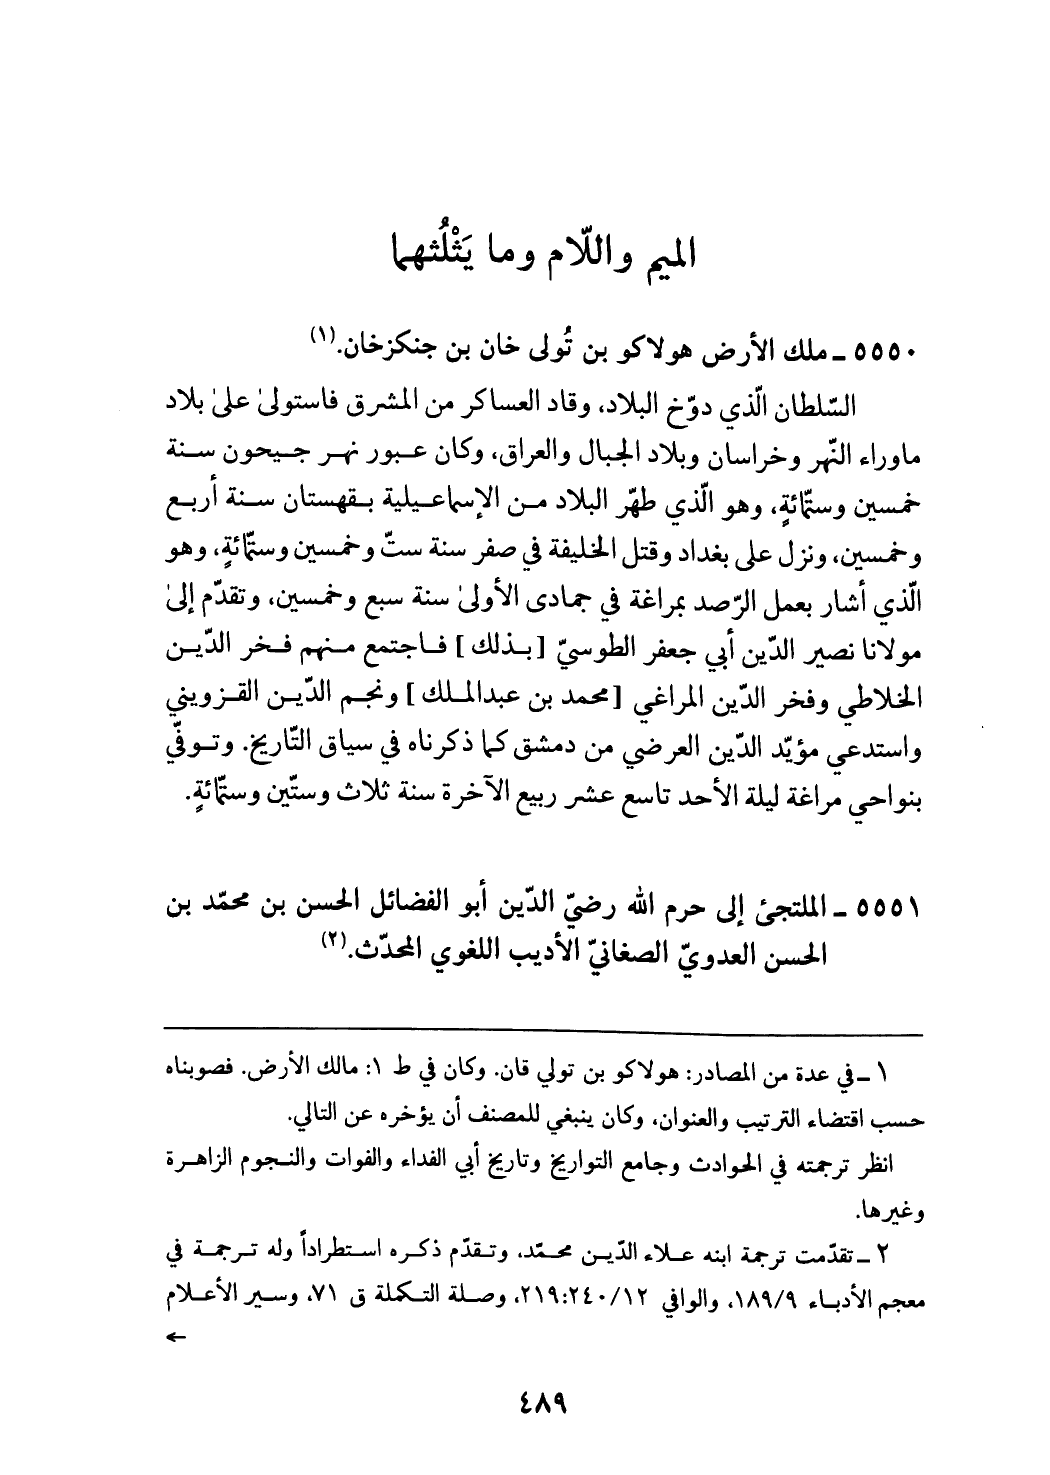 الميم واللّام وما يَثْلُثهما
٥٥٥٠ ـ ملك الأرض هولاكو بن تُولى خان بن جنكزخان.(١)
السّلطان الّذي دوّخ البلاد، وقاد العساكر من المشرق فاستولىٰ علىٰ بلاد
ماوراء النّهر وخراسان وبلاد الجبال والعراق، وكان عبور نهر جيحون سنة
خمسين وستّمائةٍ، وهو الّذي طهّر البلاد من الإسماعيلية بقهستان سنة أربع
وخمسين، ونزل على بغداد وقتل الخليفة في صفر سنة ستّ وخمسين وستّمائةٍ، وهو
الّذي أشار بعمل الرّصد بمراغة في جمادى الأولىٰ سنة سبع وخمسين، وتقدّم إلىٰ
مولانا نصير الدّين أبي جعفر الطوسيّ [بذلك] فاجتمع منهم فخر الدّين
الخلاطي وفخر الدّين المراغي [محمد بن عبدالملك] ونجم الدّين القزويني
واستدعي مؤيّد الدّين العرضي من دمشق كما ذكرناه في سياق التّاريخ. وتوفّي
بنواحي مراغة ليلة الأحد تاسع عشر ربيع الآخرة سنة ثلاث وستّين وستّمائةٍ.
٥٥٥١ ـ الملتجئ إلى حرم الله رضيّ الدّين أبو الفضائل الحسن بن محمّد بن
الحسن العدويّ الصغانيّ الأديب اللغوي المحدّث.(٢)
١ ـ في عدة من المصادر: هولاكو بن تولي قان. وكان في ط ١: مالك الأرض. فصوبناه
حسب اقتضاء الترتيب والعنوان، وكان ينبغي للمصنف أن يؤخره عن التالي.
انظر ترجمته في الحوادث وجامع التواريخ وتاريخ أبي الفداء والفوات والنجوم الزاهرة
وغيرها.
٢ ـ تقدّمت ترجمة ابنه علاء الدّين محمّد، وتقدّم ذكره استطراداً وله ترجمة في
معجم الأدباء ١٨٩/٩، والوافي ٢١٩:٢٤٠/١٢، وصلة التكملة ق ٧١، وسير الأعلام
←
٤٨٩